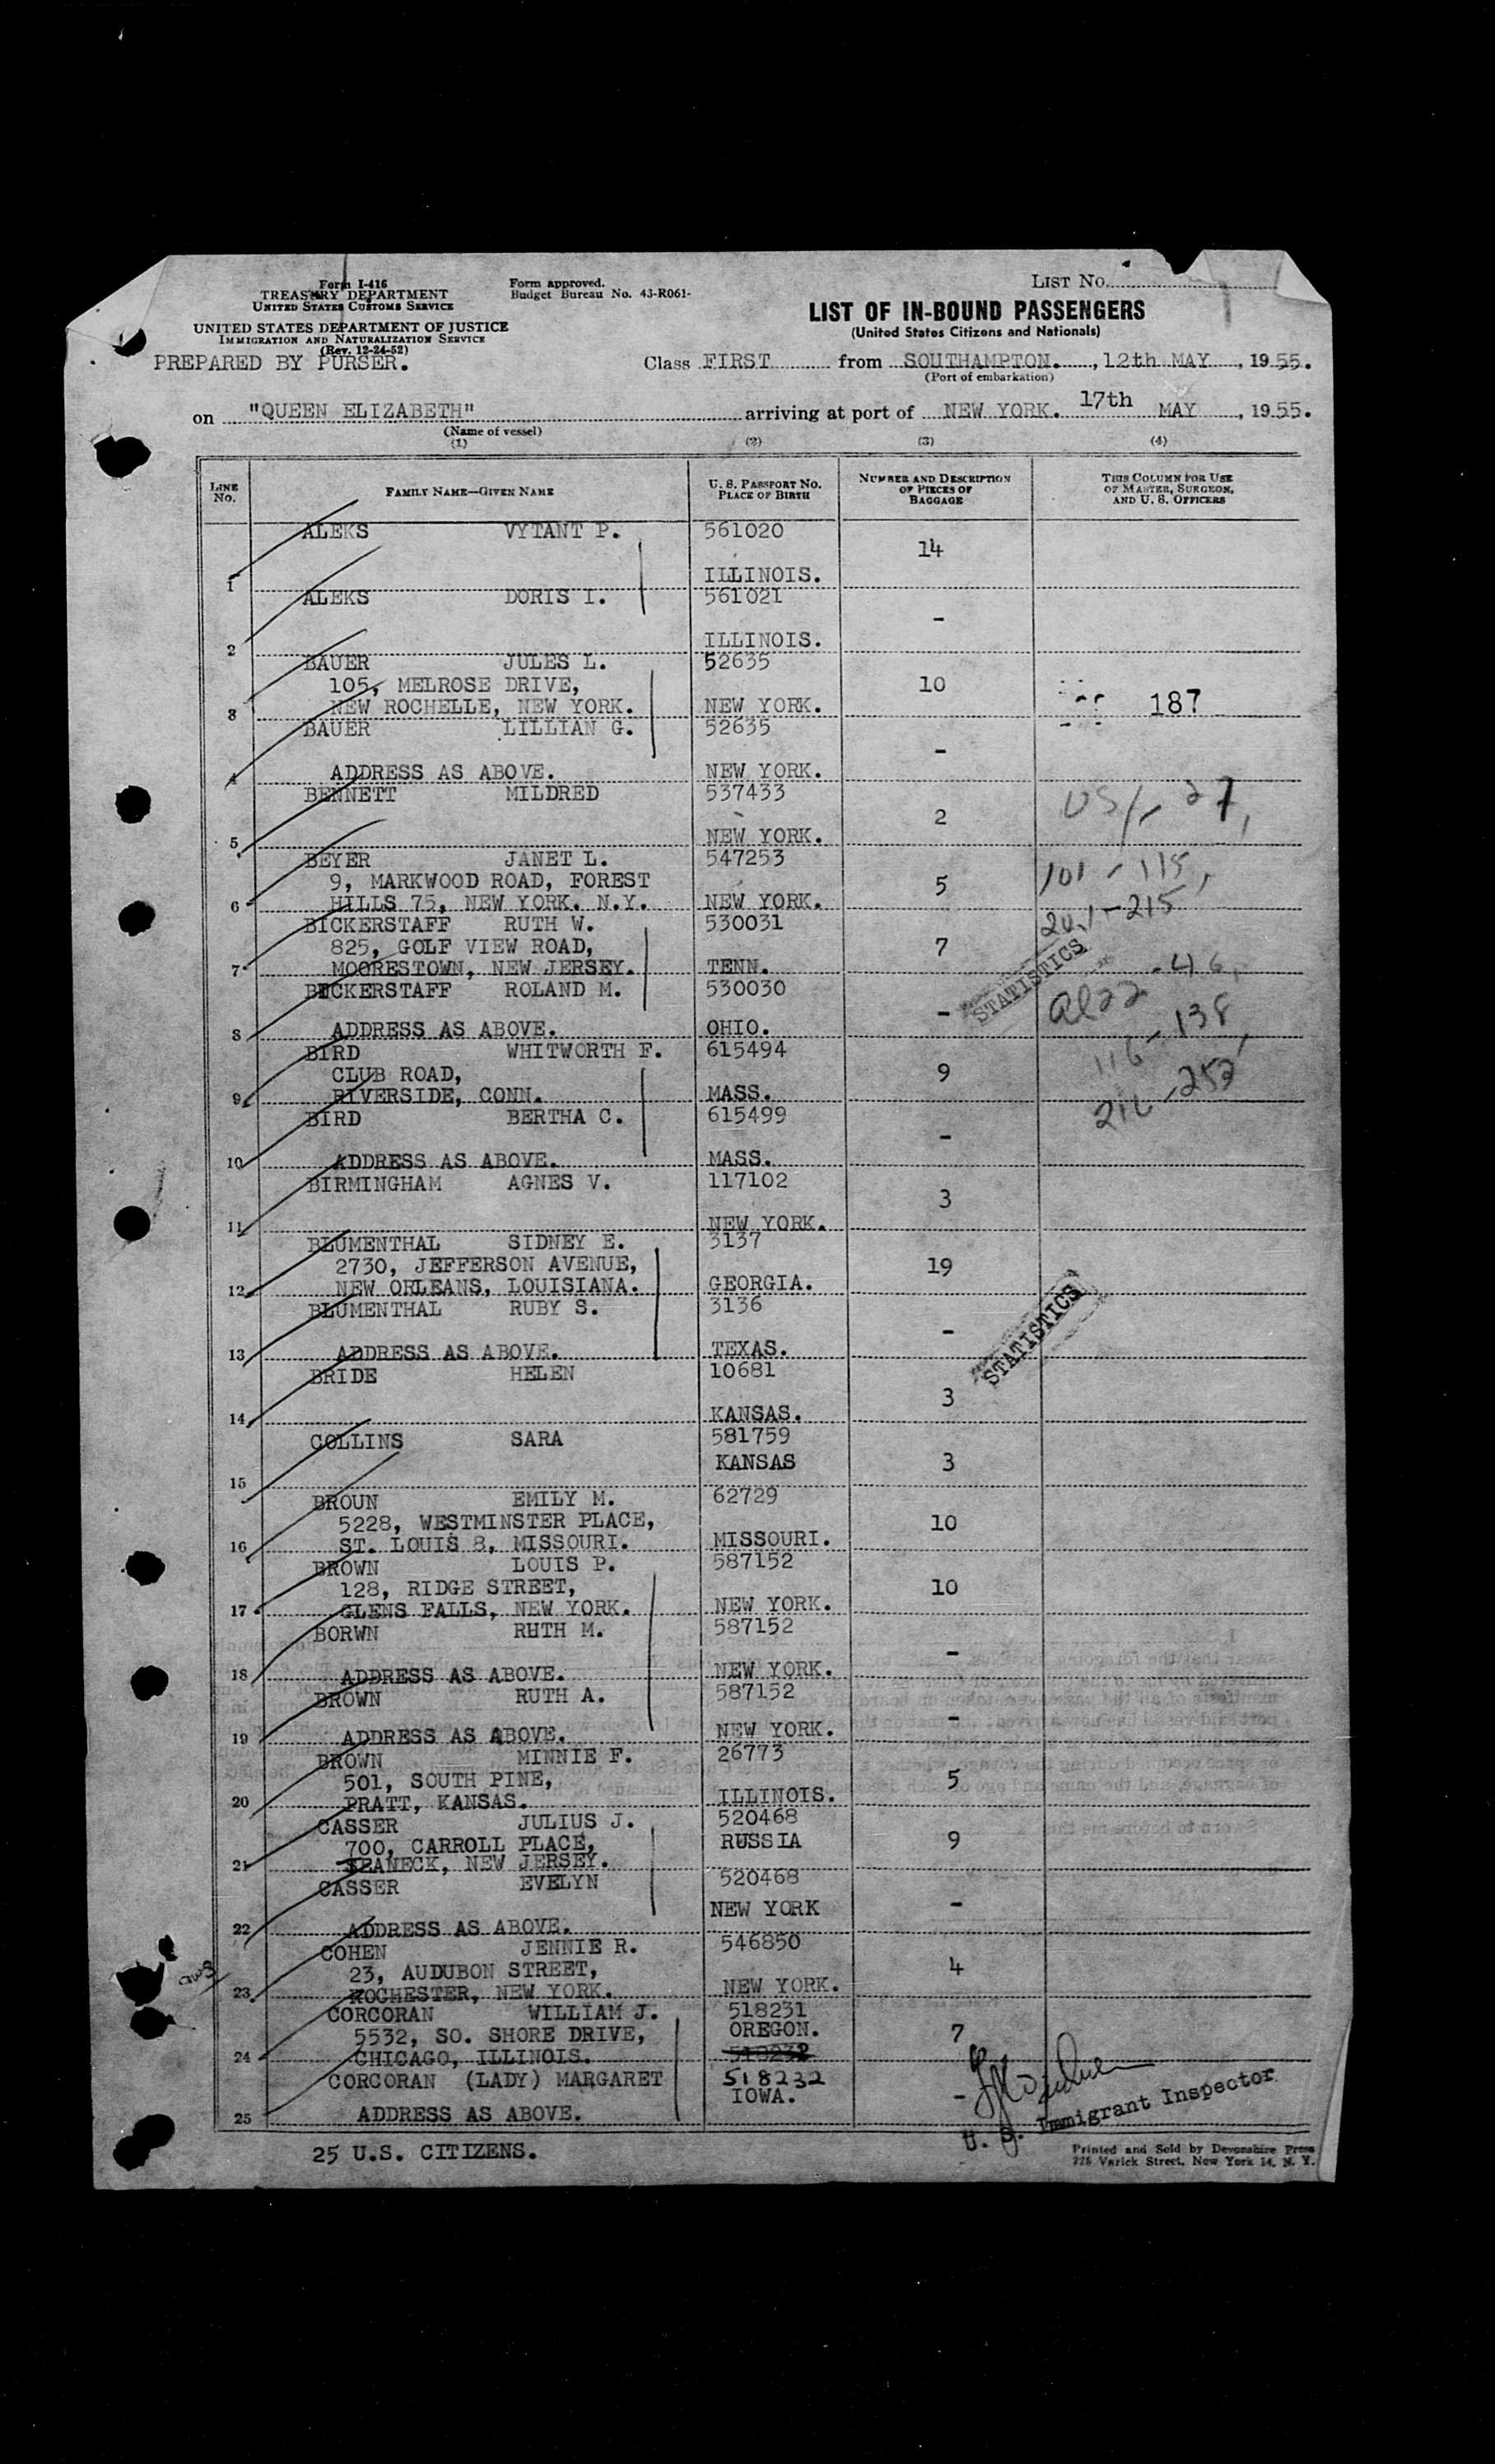 Form I-416
TREASURY DEPARTMENT
UNITED STATES CUSTOMS SERVICE
UNITED STATES DEPARTMENT OF JUSTICE
IMMIGRATION AND NATURALIZATION SERVICE
(Rev. 12-24-52)
PREPARED BY PURSER.
Form approved.
Budget Bureau No. 43-R061-
LIST NO.
LIST OF IN-BOUND PASSENGERS
(United States Citizens and Nationals)
Class FIRST from SOUTHAMPTON. , 12th MAY , 1955.
(Port of embarkation)
on "QUEEN ELIZABETH" arriving at port of NEW YORK. 17th MAY , 1955.
(Name of vessel)
(1) (2) (3) (4)
LINE NO. FAMILY NAME—GIVEN NAME U. S. PASSPORT NO. PLACE OF BIRTH NUMBER AND DESCRIPTION OF PIECES OF BAGGAGE THIS COLUMN FOR USE OF MASTER, SURGEON, AND U. S. OFFICERS
ALEKS VYTANT P. 561020
14
1 ILLINOIS.
ALEKS DORIS I. 561021
-
2 ILLINOIS.
BAUER JULES L. 52635
105, MELROSE DRIVE, 10
3 NEW ROCHELLE, NEW YORK. NEW YORK. 187
BAUER LILLIAN G. 52635
-
4 ADDRESS AS ABOVE. NEW YORK.
BENNETT MILDRED 537433
2 US/- 27,
5 NEW YORK.
BEYER JANET L. 547253
9, MARKWOOD ROAD, FOREST 5 101 - 115,
6 HILLS 75, NEW YORK. N.Y. NEW YORK.
201-215
BICKERSTAFF RUTH W. 530031
825, GOLF VIEW ROAD, 7
7 MOORESTOWN, NEW JERSEY. TENN.
STATISTICS
- 46,
BICKERSTAFF ROLAND M. 530030
-
8 ADDRESS AS ABOVE. OHIO.
116 - 138,
BIRD WHITWORTH F. 615494
CLUB ROAD, 9
9 RIVERSIDE, CONN. MASS.
216-252
BIRD BERTHA C. 615499
-
10 ADDRESS AS ABOVE. MASS.
BIRMINGHAM AGNES V. 117102
3
11 NEW YORK.
BLUMENTHAL SIDNEY E. 3137
2730, JEFFERSON AVENUE, 19
12 NEW ORLEANS, LOUISIANA. GEORGIA.
BLUMENTHAL RUBY S. 3136
-
STATISTICS
13 ADDRESS AS ABOVE. TEXAS.
BRIDE HELEN 10681
3
14 KANSAS.
COLLINS SARA 581759
KANSAS 3
15
BROUN EMILY M. 62729
5228, WESTMINSTER PLACE, 10
16 ST. LOUIS 8, MISSOURI. MISSOURI.
BROWN LOUIS P. 587152
128, RIDGE STREET, 10
17 GLENS FALLS, NEW YORK. NEW YORK.
BORWN RUTH M. 587152
-
18 ADDRESS AS ABOVE. NEW YORK.
BROWN RUTH A. 587152
-
19 ADDRESS AS ABOVE. NEW YORK.
BROWN MINNIE F. 26773
501, SOUTH PINE, 5
20 PRATT, KANSAS. ILLINOIS.
CASSER JULIUS J. 520468
700, CARROLL PLACE, RUSSIA 9
21 TEANECK, NEW JERSEY.
CASSER EVELYN 520468
NEW YORK -
22 ADDRESS AS ABOVE.
COHEN JENNIE R. 546850
23, AUDUBON STREET, 4
23 ROCHESTER, NEW YORK. NEW YORK.
CORCORAN WILLIAM J. 518231
5532, SO. SHORE DRIVE, OREGON. 7
24 CHICAGO, ILLINOIS. 518232
CORCORAN (LADY) MARGARET 518232
IOWA. -
25 ADDRESS AS ABOVE.
U. S. Immigrant Inspector
25 U.S. CITIZENS.
Printed and Sold by Devonshire Press
225 Varick Street, New York 14, N. Y.